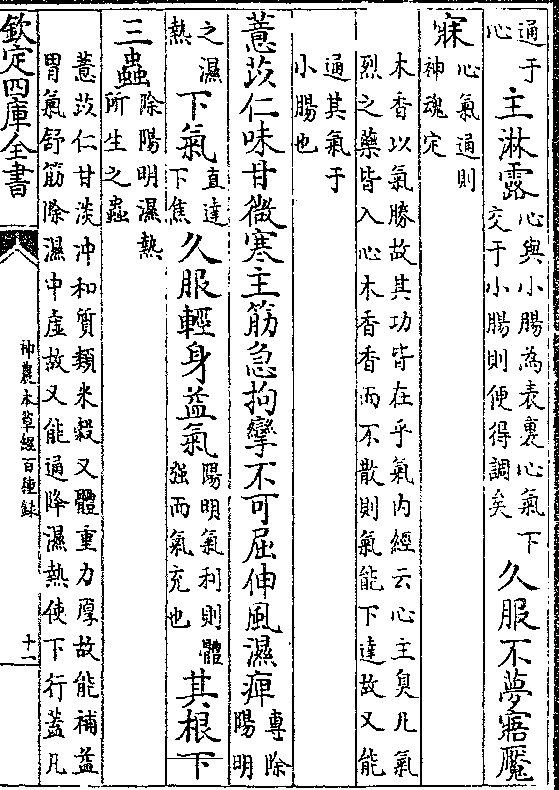 通于心主淋露心與小腸為表裏心氣下交于小腸則便得調矣久服不夢寤魘
寐心氣通則神魂定
木香以氣勝故其功皆在乎氣内經云心主臭凡氣
烈之藥皆入心木香香而不散則氣能下達故又能
通其氣于
小腸也
薏苡仁味甘微寒主筋急拘攣不可屈伸風濕痺專除陽明
之濕熱下氣直達下焦久服輕身益氣陽明氣利則體强而氣充也其根下
三蟲除陽明濕熱所生之蟲
薏苡仁甘淡沖和質類米穀又體重力厚故能補益
胃氣舒筋除濕中虚故又能通降濕熱使下行蓋凡
欽定四庫全書
神農本草經百種録
十一